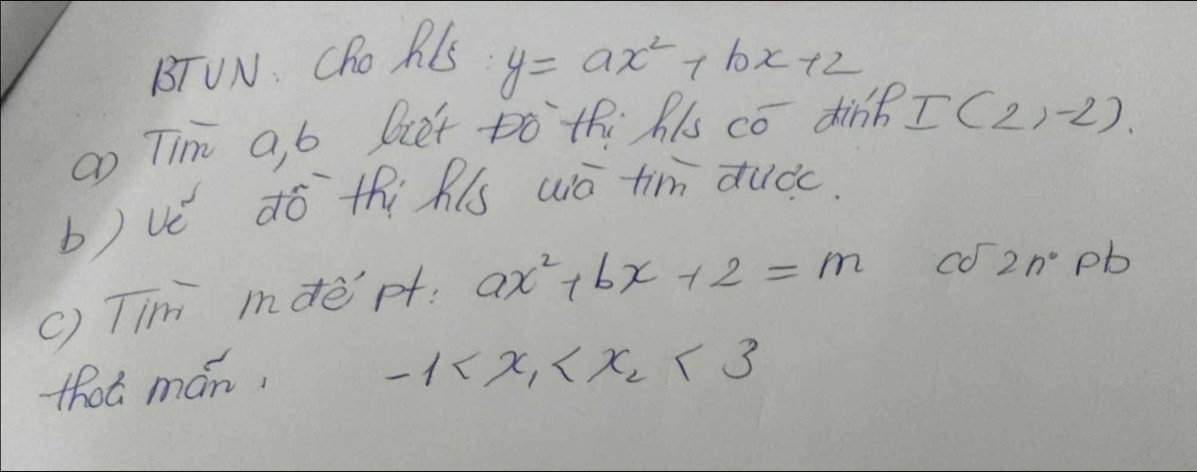 BTVN. Cho h/s : y = ax² + bx + 2
a) Tìm a,b biết Đồ thị h/s có đỉnh I (2,-2).
b) Vẽ đồ thị h/s vừa tìm được.
c) Tìm m để pt: ax² + bx + 2 = m có 2n° pb
thoả mãn. -1 < x₁ < x₂ < 3